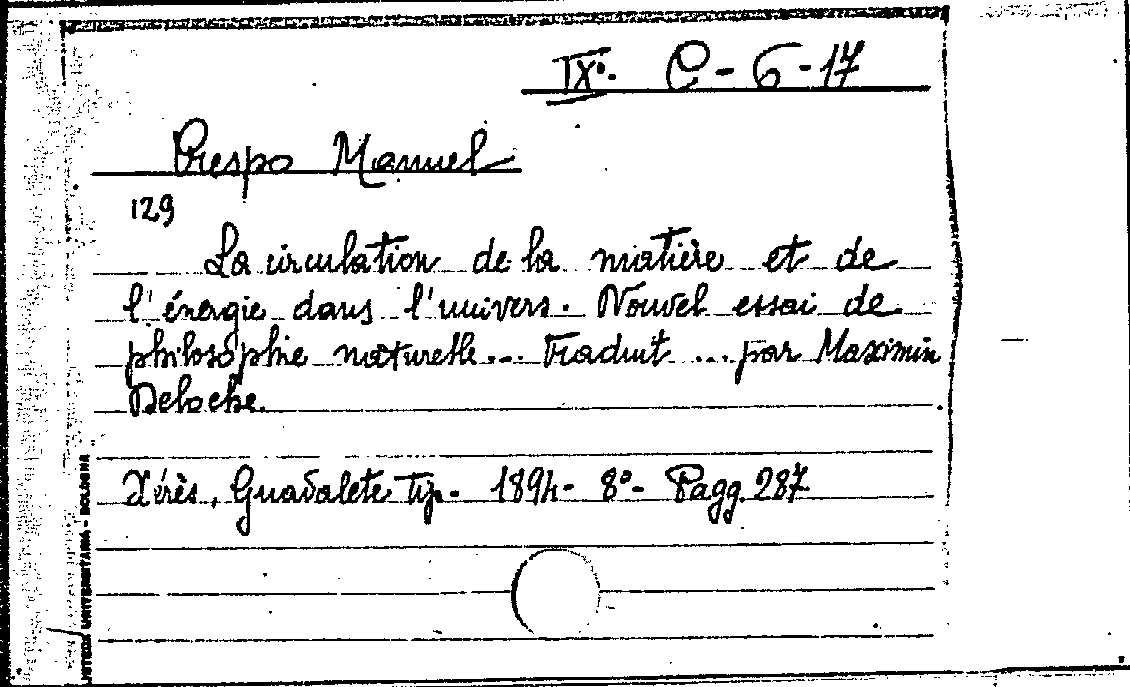 IXº. C-6-17
Crespo Manuel
129
La circulation de la matière et de
l'énergie dans l'univers. Nouvel essai de
philosophie naturelle... Traduit ... par Maximin
Deloche.
Xérès, Guadalete tip. 1894- 8º- Pagg. 287
UNIVERSITARIA - BOLOGNA